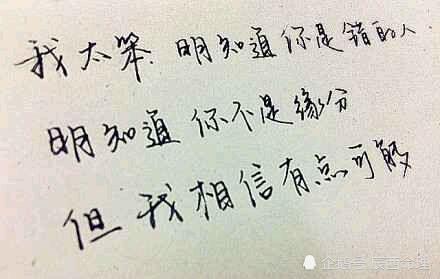 我太笨 明知道你是错的人
明知道 你不是缘分
但 我相信有点可能
企鹅号